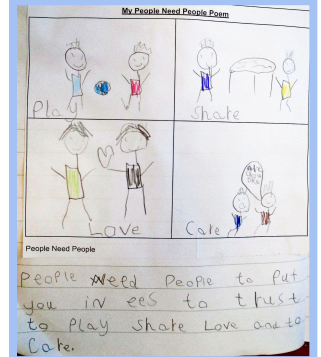 My People Need People Poem
Play
Share
Love
Care
People Need People
People Need People to Put
you in ees to trust
to Play share Love and to
Care.